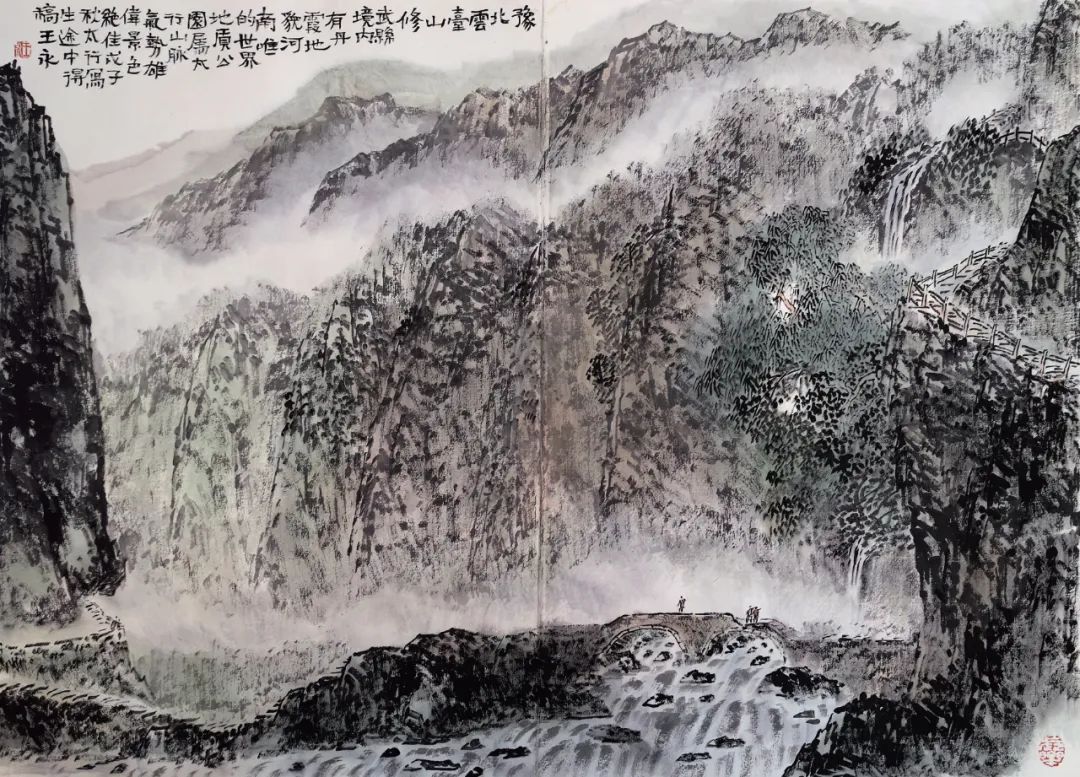 豫
北
雲
臺
山
修
武縣
境内
有丹
霞地
貌河
南唯
的世界
地質公
園属太
行山脉
氣勢雄
偉景色
絶佳戊子
秋太行寫
生途中得
稿王永